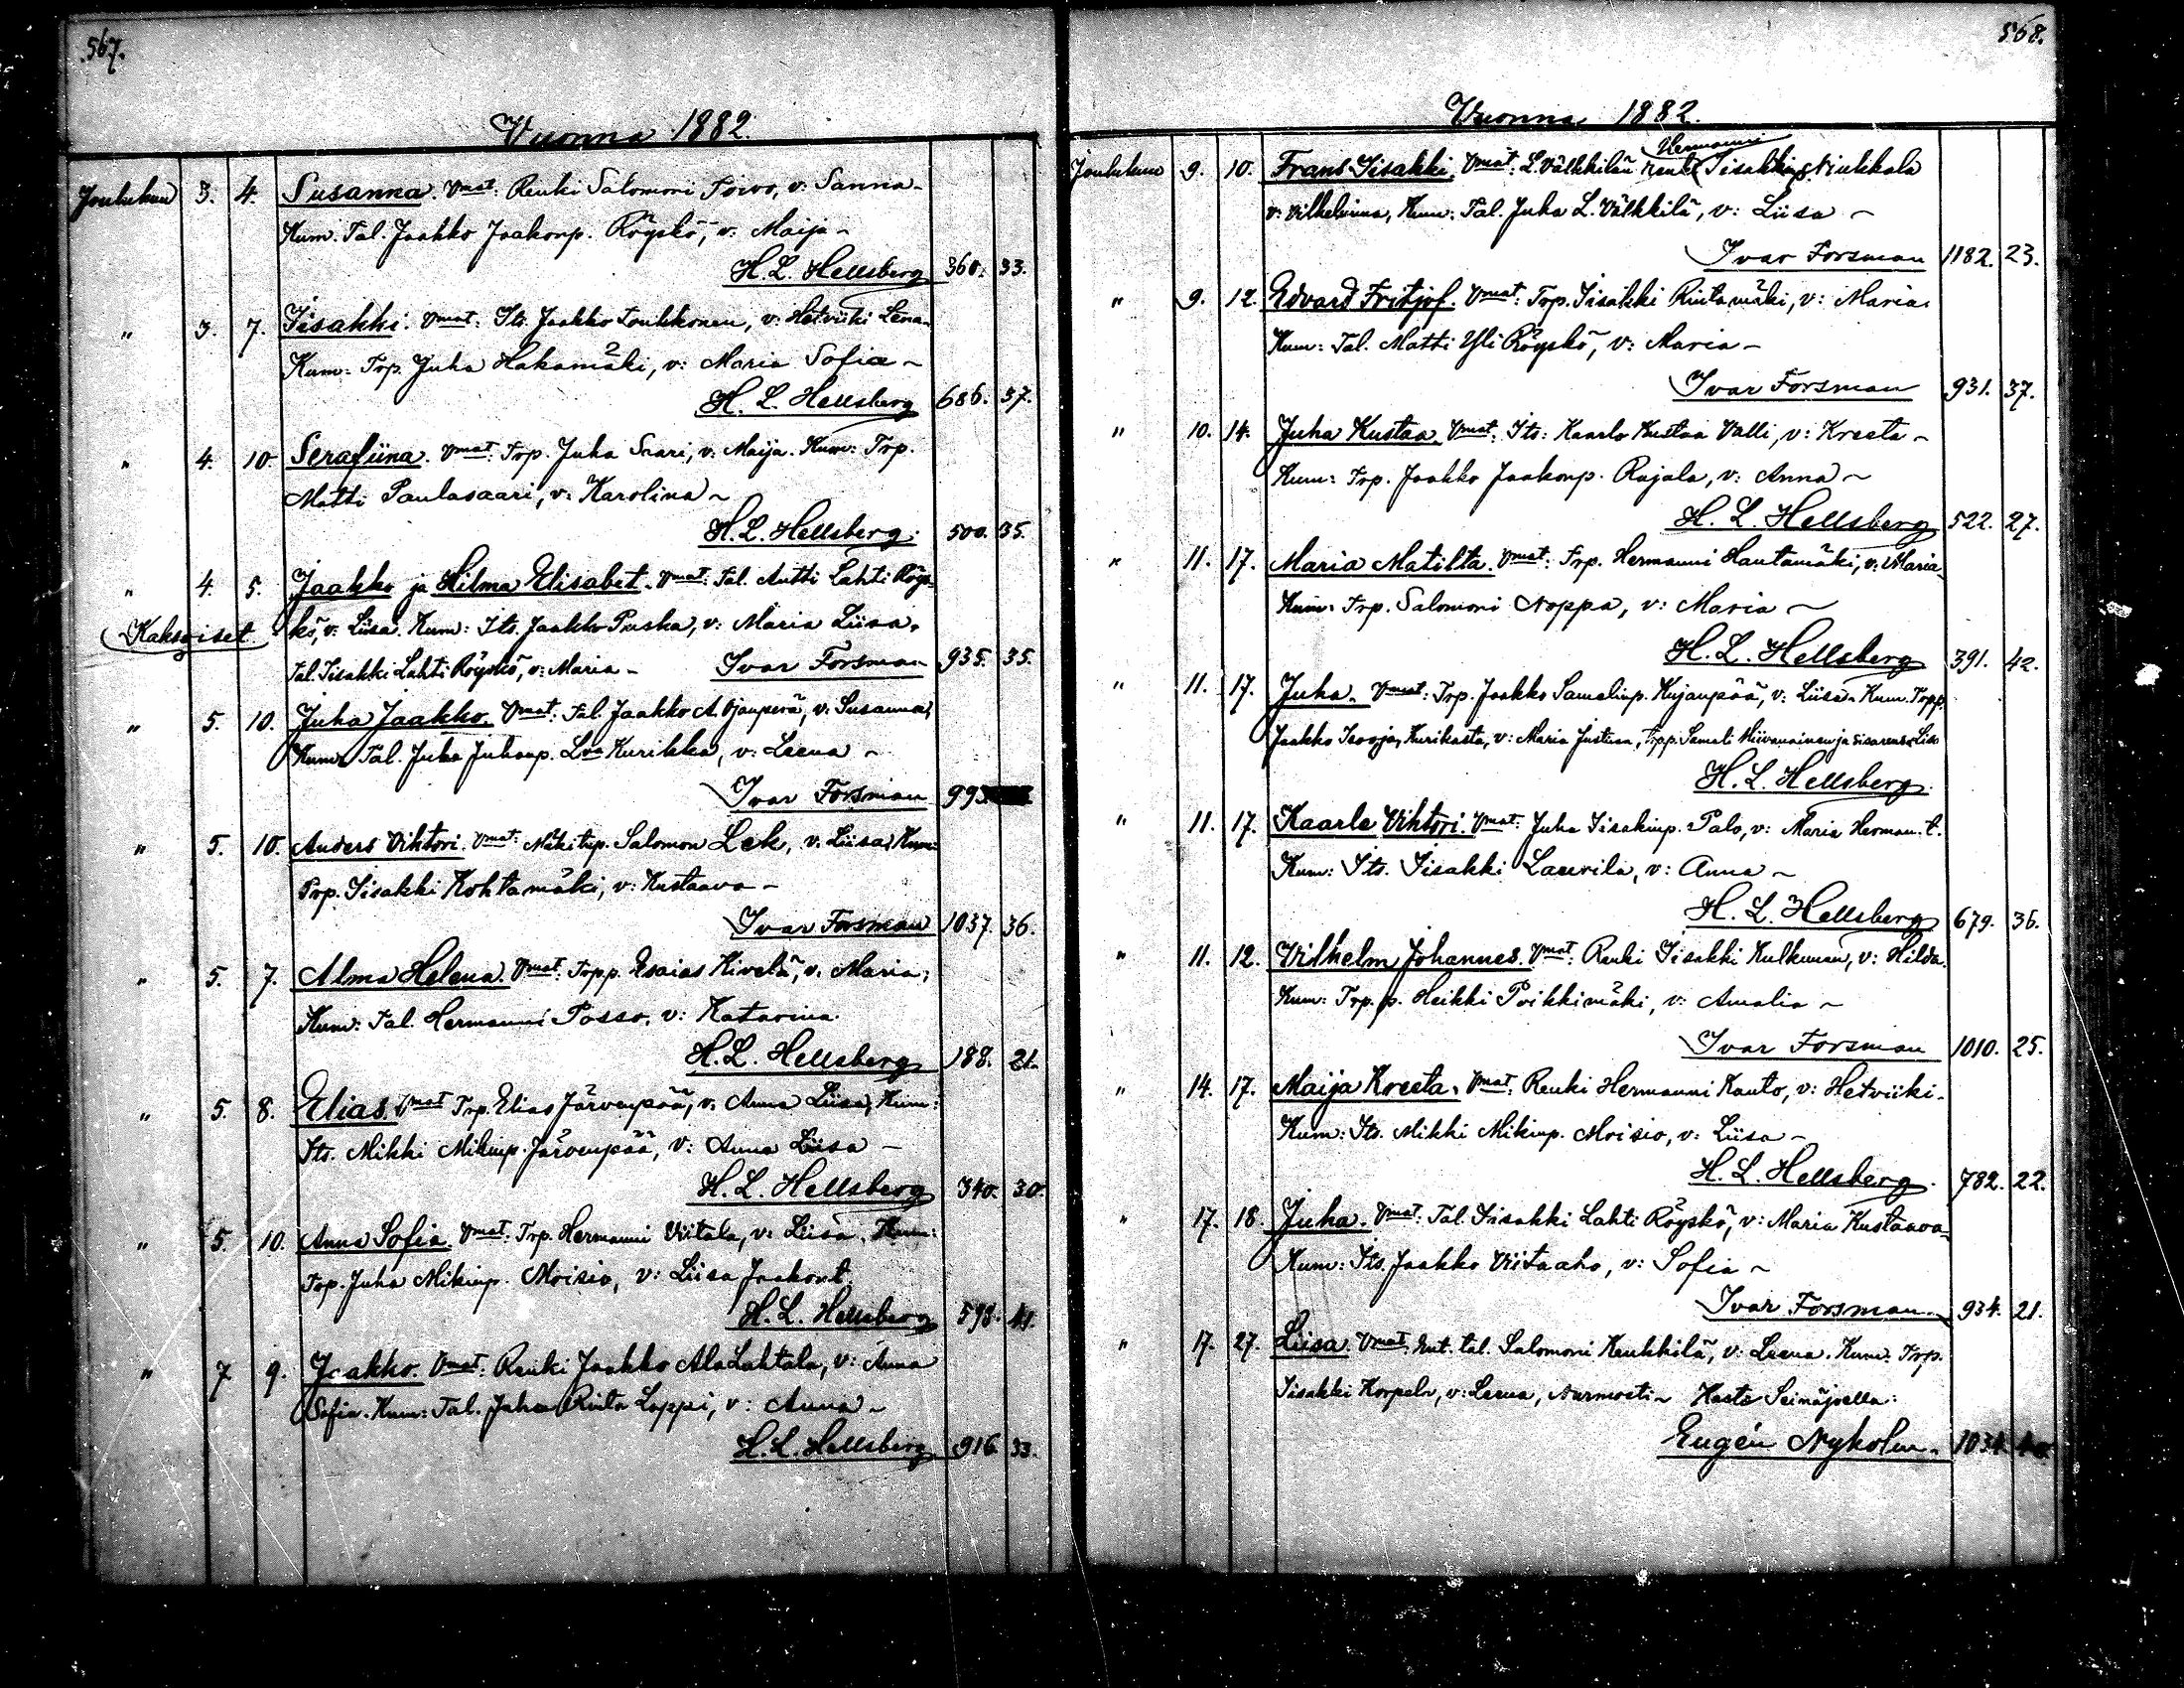 567.
Vuonna 1882.
Joulukuu 3. 4. Susanna. Vmat: Renki Salomoni Toivo, v: Sanna.
Kum. Tal. Jaakko Jaakonp. Röyskö, v: Maija ~
H. L. Hellsberg 360. 33.
" 3. 7. Iisakki. Vmat: Its. Jaakko Loukkonen, v: Hetviiki Lena.
Kum: Trp. Juha Hakamäki, v: Maria Sofia ~
H. L. Hellsberg 686. 37.
" 4. 10. Serafiina. Vmat: Trp. Juha Saari, v: Maija. Kum: Trp.
Matti Paulasaari, v: Karolina ~
H. L. Hellsberg. 500. 35.
" 4. 5. Jaakko ja Hilma Elisabet. Vmat: Tal. Antti Lahti Röys-
Kaksoiset kö, v: Liisa. Kum: Its. Jaakko Puska, v: Maria Liisa.
Tal. Iisakki Lahti Röyskö, v: Maria ~ Ivar Forsman 935. 35.
" 5. 10. Juha Jaakko. Vmat: Tal. Jaakko A. Ojanperä, v: Susanna,
Kum. Tal. Juha Juhanp. Kurikka, v: Leena ~
Ivar Forsman 993
" 5. 10. Anders Vihtori. Vmat: Mäkitup. Salomon Lek, v: Liisa, Kum:
Trp. Iisakki Kohtamäki, v: Kustaava ~
Ivar Forsman 1037. 36.
" 5. 7. Alma Helena. Vmat: Trpp. Esaias Kivelä, v: Maria,
Kum: Tal. Hermanni Passo, v: Katarina
H. L. Hellsberg 188. 21.
" 5. 8. Elias. Vmat Trp. Elias Järvenpää, v: Anna Liisa, Kum:
Its. Mikki Mikinp. Järvenpää, v: Anna Liisa ~
H. L. Hellsberg 340. 30.
" 5. 10. Anna Sofia. Vmat: Trp. Hermanni Viitala, v: Liisa, Kum:
Trp. Juha Mikinp. Moisio, v: Liisa Jaakont.
H. L. Hellsberg 598. 41.
" 7. 9. Jaakko. Vmat: Renki Jaakko Ala Lahtala, v: Anna
Sofia. Kum: Tal. Juha Rinta Loppi, v: Anna ~
H. L. Hellsberg 916. 33.
568.
Vuonna 1882.
Hermanni
Joulukuu 9. 10. Frans Iisakki. Vmat: L. Välkkilän renki Iisakki Niukkala
v: Vilhelmina, Kum: Tal. Juha L. Välkkilä, v: Liisa ~
Ivar Forsman 1182. 23.
" 9. 12. Edvard Fritjof. Vmat: Trp. Iisakki Rintamäki, v: Maria.
Kum: Tal. Matti Yli Röyskö, v: Maria ~
Ivar Forsman 931. 37.
" 10. 14. Juha Kustaa. Vmat: Its: Kaarlo Kustaa Valli, v: Kreeta ~
Kum: Trp. Jaakko Jaakonp. Rajala, v: Anna ~
H. L. Hellsberg 522. 27.
" 11. 17. Maria Matilta. Vmat: Trp. Hermanni Hautamäki, v: Maria.
Kum: Trp. Salomoni Noppa, v: Maria ~
H. L. Hellsberg 391. 42.
" 11. 17. Juha. Vmat: Trp. Jaakko Samelinp. Kujanpää, v: Liisa. Kum. Trpp.
Jaakko Isooja, Kurikasta, v: Maria Justiina, Trpp. Sameli Kiivanainen ja sisarensa Liisa
H. L. Hellsberg.
" 11. 17. Kaarle Vihtori. Vmat: Juha Iisakinp. Palo, v: Maria Herman. t.
Kum: Its. Iisakki Laurila, v: Anna ~
H. L. Hellsberg 679. 36.
" 11. 12. Vilhelm Johannes. Vmat: Renki Iisakki Kulkunen, v: Hilda.
Kum: Trp. p. Heikki Poikkimäki, v: Amalia ~
Ivar Forsman 1010. 25.
" 14. 17. Maija Kreeta. Vmat: Renki Hermanni Kauto, v: Hetviiki.
Kum: Its. Mikki Mikinp. Moisio, v: Liisa ~
H. L. Hellsberg. 782. 22.
" 17. 18. Juha. Vmat: Tal. Iisakki Lahti Röyskö, v: Maria Kustaava.
Kum: Its. Jaakko Viitaaho, v: Sofia ~
Ivar Forsman. 934. 21.
" 17. 27. Liisa. Vmat: Ent. tal. Salomoni Keukkilä, v: Leena. Kum: Trp.
Iisakki Korpela, v: Leena, Nurmosti ~ Kaste Seinäjoella:
Eugén Nyholm. 1034. 40.